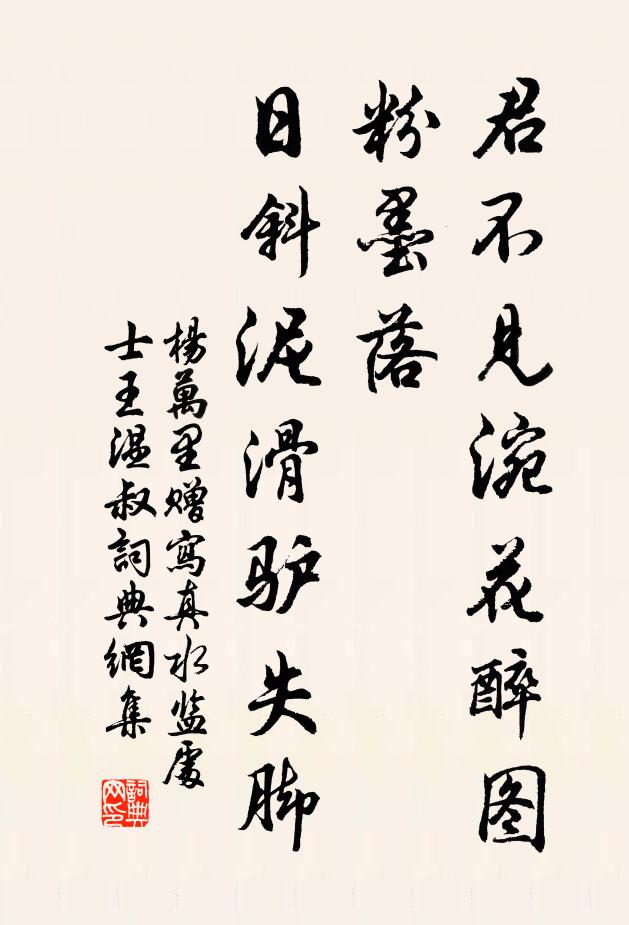 君不见浣花醉图
粉墨落
日斜泥滑驴失脚
楊萬里赠寫真水监處
士王温叔詞典網集
詞典网印